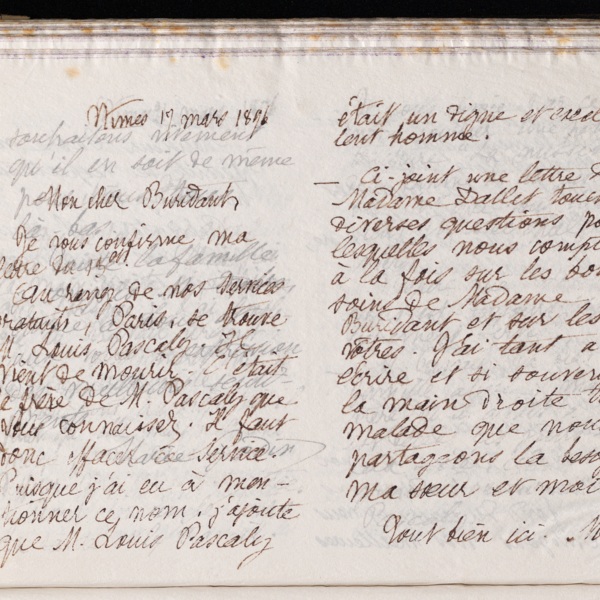 Nîmes 17 mars 1896
Mon cher Buridant,
Je vous confirme ma
lettre du 15
Au rang de nos services
gratuits, Paris, se trouve
M. Louis Pascaly. Il
vient de mourir. C'était
le frère de M. Pascaly que
vous connaissez. Il faut
donc effacer ce service
Puisque j'ai eu à men-
tionner ce nom, j'ajoute
que M. Louis Pascaly
était un digne et excel
lent homme.
— Ci-joint une lettre d
Madame Dallet touch
diverses questions po
lesquelles nous compt
à la fois sur les bon
soins de Madame
Buridant et sur les
vôtres. J'ai tant à
écrire et si souven
la main droite
malade que nou
partageons la beso
ma sœur et moi
Tout bien ici.